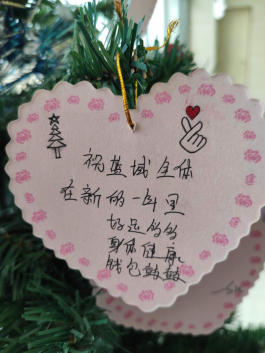 祝盐城全体
在新的一年里
好运多多
身体健康
钱包鼓鼓